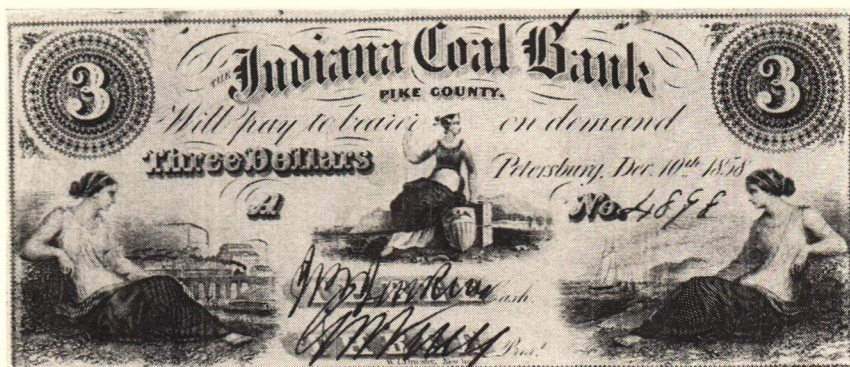 3 THE Indiana Coal Bank 3
PIKE COUNTY.
Will pay to bearer on demand
Three Dollars Petersburg, Dec. 10th 1858
A No. 4898
Cash.
Pres.t